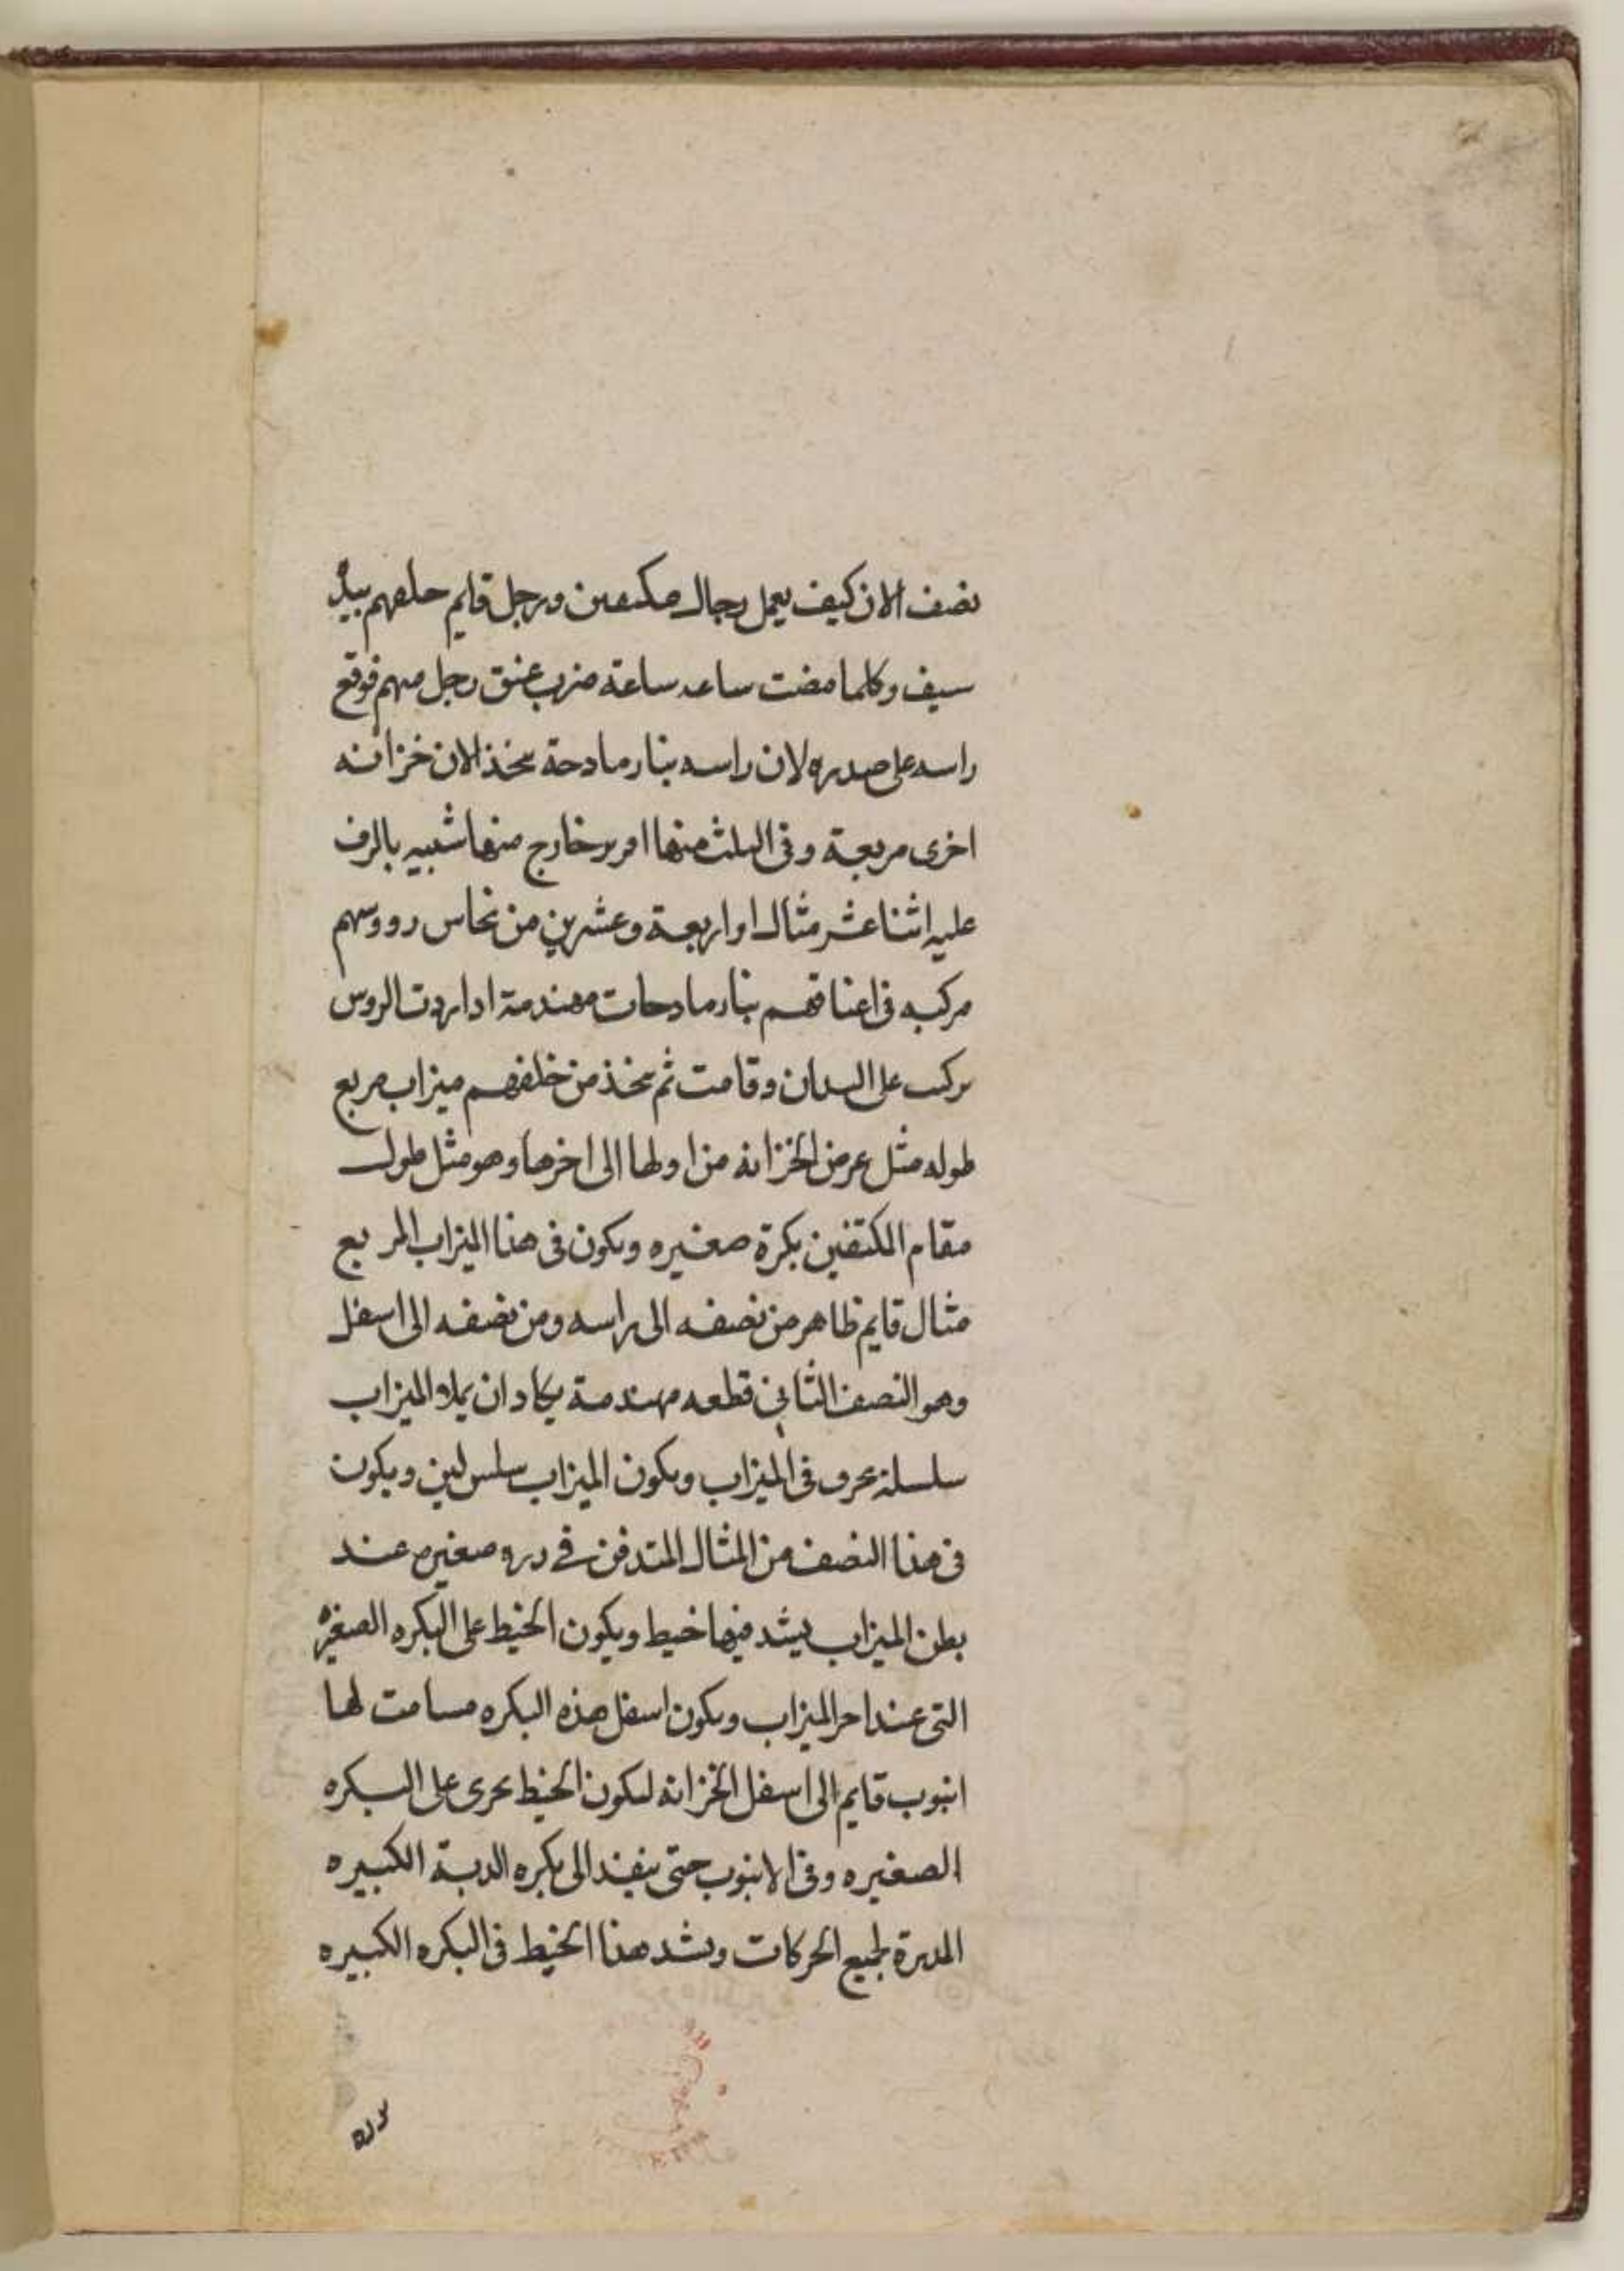 نصف الان كيف يعمل رجال مكتفين ورجل قايم خلفهم بيده
سيف وكلما مضت ساعه ساعة ضرب عنق رجل منهم فوقع
راسه على صدره لان راسه بنار مادجة يتخذ الان خزانه
اخرى مربعة وفى الثلث منها خارج منها شبيه بالرف
عليه اثنا عشر مثالا او اربعة وعشرين من نحاس رووسهم
مركبه فى اعناقهم بنار مادجات مهندمة اذا ردت الروس
تركب على البدان وقامت ثم يتخذ من خلفهم ميزاب مربع
طوله مثل عرض الخزانه من اولها الى اخرها وهو مثل طول
مقام المكتفين بكرة صغيره ويكون فى هذا الميزاب المربع
مثال قايم ظاهر من نصفه الى راسه ومن نصفه الى اسفل
وهو النصف الثانى قطعه مهندمة يكاد ان يملا والميزاب
سلسلة تجرى فى الميزاب ويكون الميزاب سلس لين ويكون
فى هذا النصف من المثال المتدفن فى صغيره عند
بطن الميزاب يشد فيها خيط ويكون الخيط على البكره الصغيره
التى عند اخر الميزاب ويكون اسفل هذه البكره مسامت لها
انبوب قايم الى اسفل الخزانه ليكون الخيط يجرى على البكره
الصغيره وفى الانبوب حتى ينفذ الى بكره الدبة الكبيره
المدبرة لجميع الحركات ويشد هذا الخيط فى البكره الكبيره